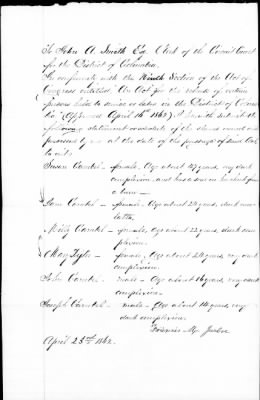 To John A. Smith Esq Clerk of the Circuit Court
for the District of Columbia.
In conformity with the Ninth Section of the Act of
Congress entitled "An Act for the release of certain
persons held to service or labor in the District of Colum
bia" (Approved April 16th 1862) I herewith submit the
following statement or schedule of the slaves owned and
possessed by me at the date of the passage of said Act,
to wit:
Susan — female, Age about 47 years, very dark
complexion, and has a
— female — Age about 24 years, dark mu-
latto.
Milly — female, Age about 22 years, dark com-
plexion.
— female, Age about 24 years, very dark
complexion.
John — male — Age about 16 years, very dark
complexion.
Joseph — male — Age about 14 years, very
dark complexion.
Francis M.
April 23rd 1862.